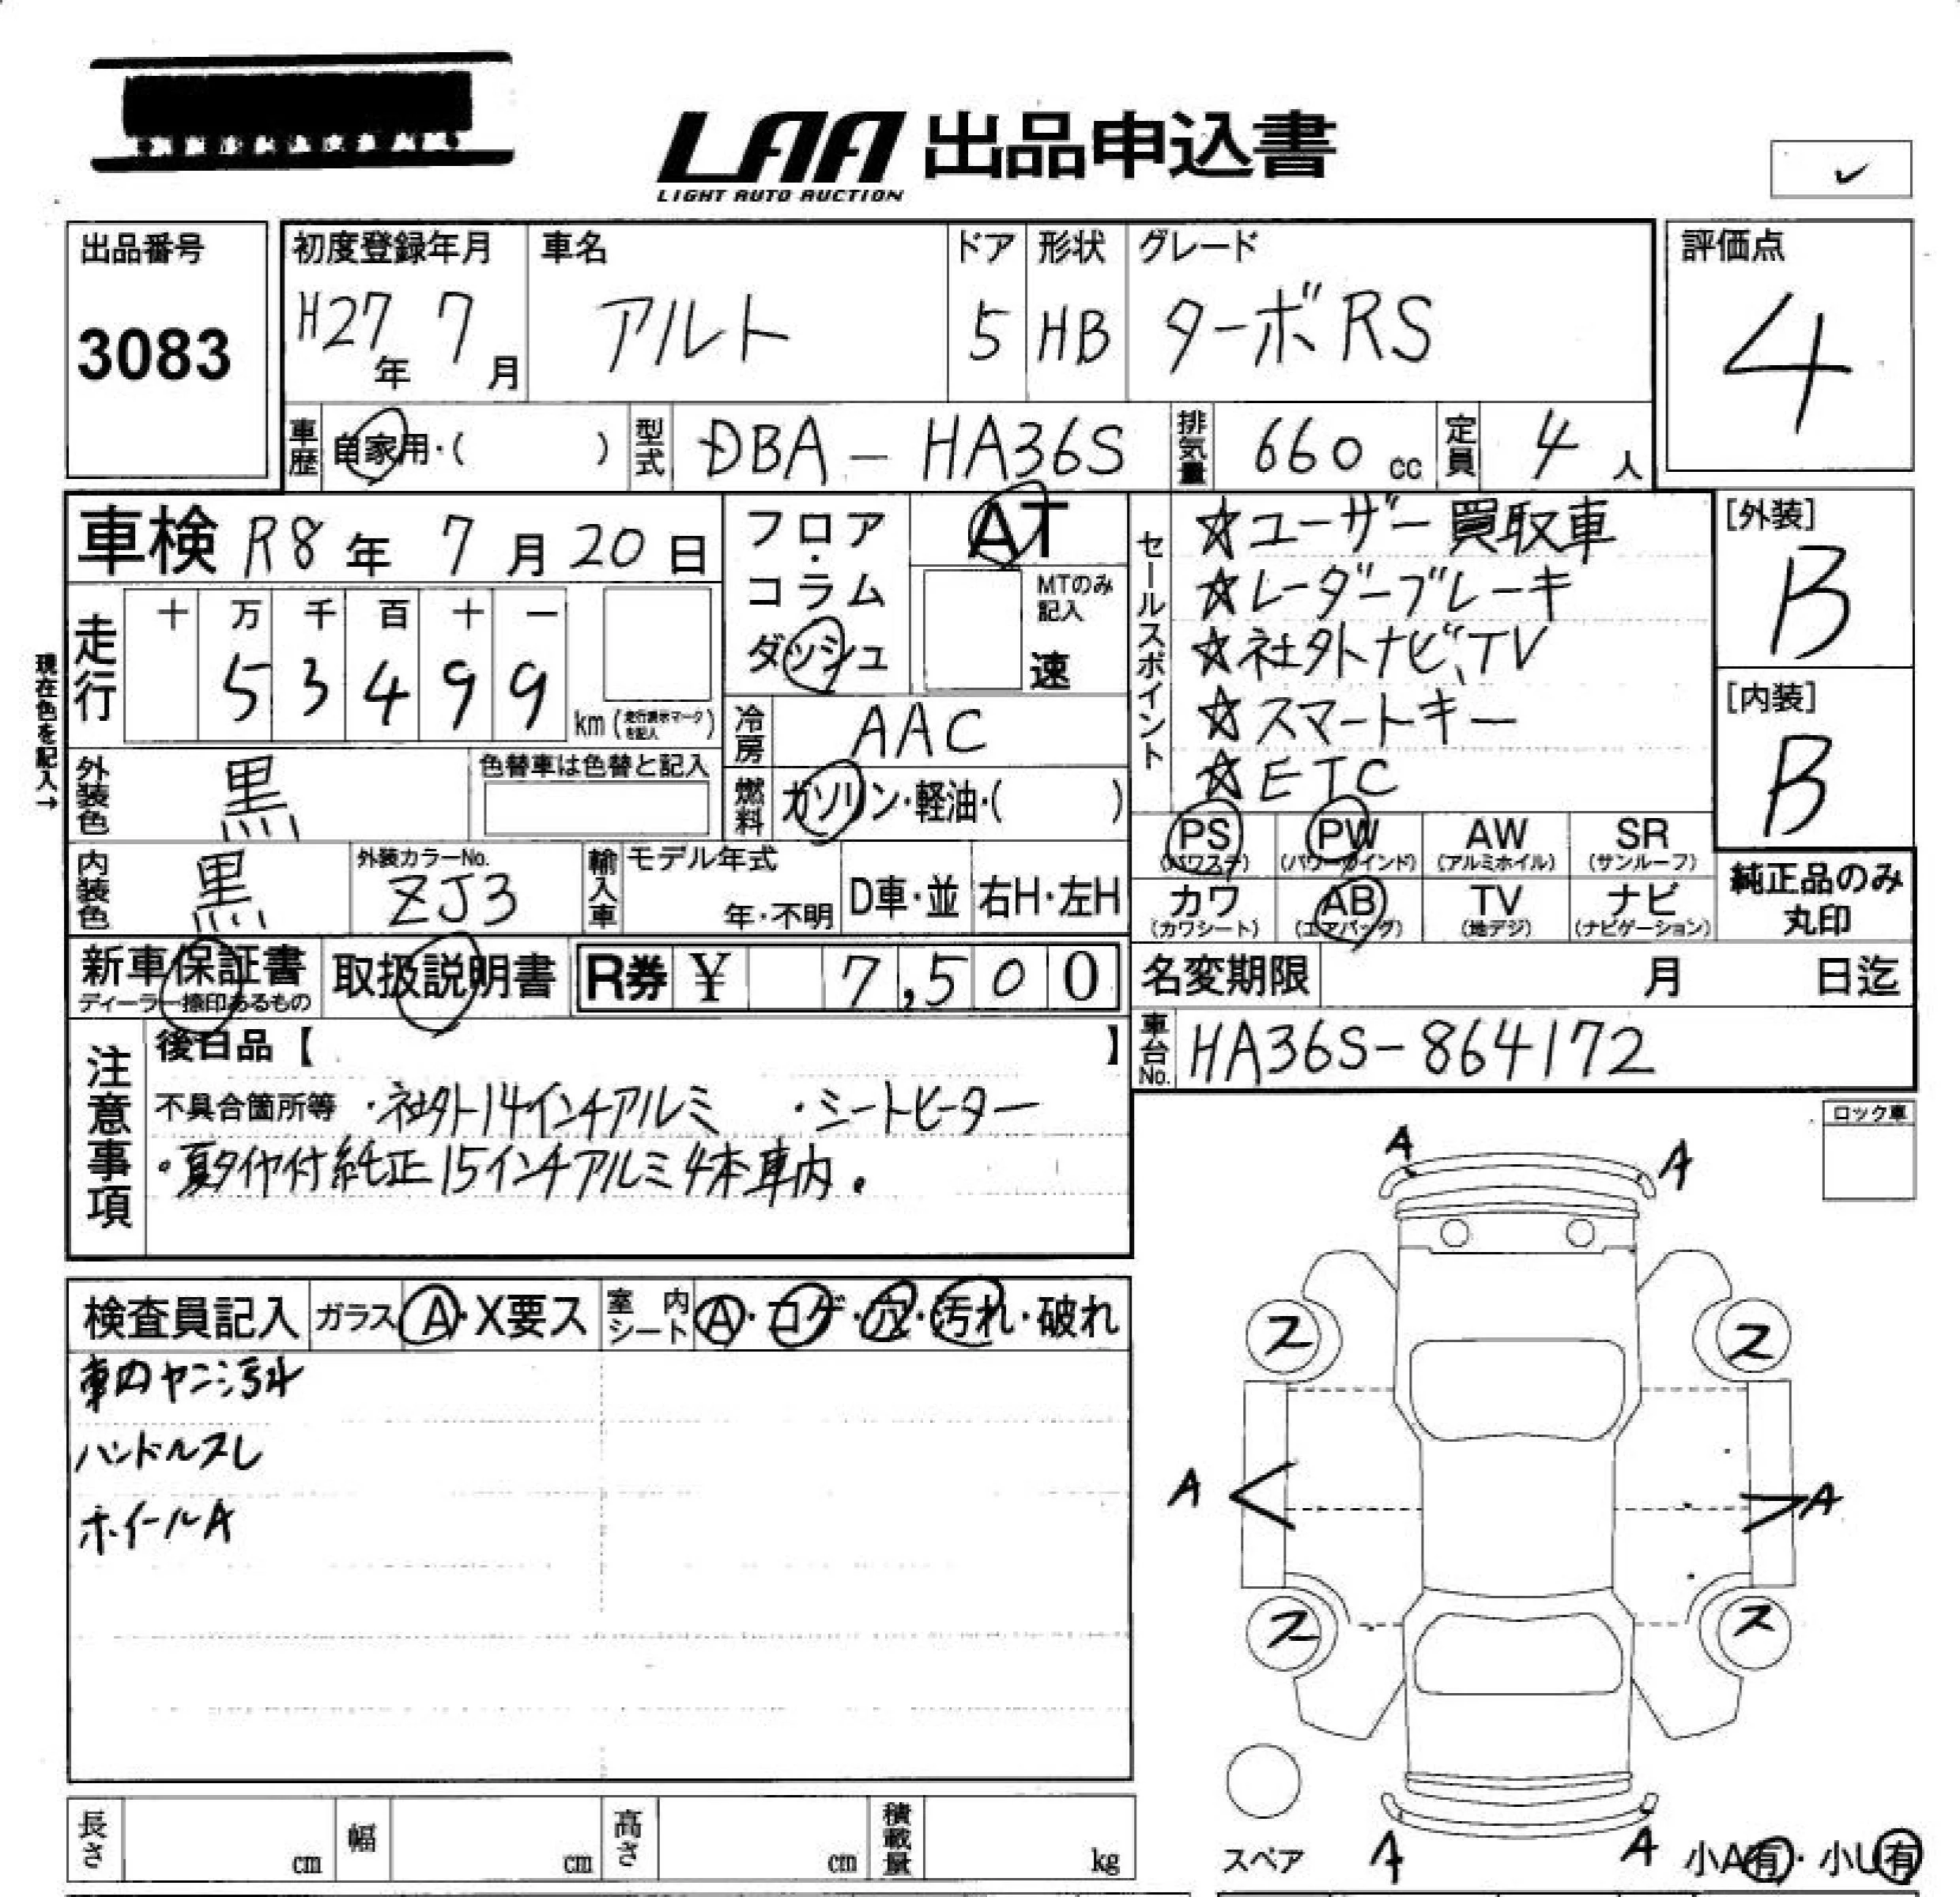 LAA 出品申込書
LIGHT AUTO AUCTION
出品番号
3083
初度登録年月
H27年 7月
車名
アルト
ドア
5
形状
HB
グレード
ターボRS
評価点
4
車歴
自家用・( )
型式
DBA-HA36S
排気量
660 cc
定員
4 人
車検 R8年 7月20日
フロア・コラム
ダッシュ
AT
MTのみ記入
速
セールスポイント
☆ユーザー買取車
☆レーダーブレーキ
☆社外ナビ、TV
☆スマートキー
☆ETC
[外装]
B
[内装]
B
現在色を記入→
走行
十 万 千 百 十 一
5 3 4 9 9
km (走行表示マークを記入)
冷房
AAC
燃料
ガソリン・軽油・( )
外装色
黒
色替車は色替と記入
内装色
黒
外装カラーNo.
ZJ3
輸入車
モデル年式
年・不明
D車・並
右H・左H
PS (パワステ)
PW (パワーウインド)
AW (アルミホイル)
SR (サンルーフ)
カワ (カワシート)
AB (エアバッグ)
TV (地デジ)
ナビ (ナビゲーション)
純正品のみ
丸印
新車保証書
ディーラー捺印あるもの
取扱説明書
R券 ¥ 7,500
名変期限 月 日迄
車台No.
HA36S-864172
注意事項
後日品【 】
不具合箇所等 ・社外14インチアルミ ・シートヒーター
・夏タイヤ付純正15インチアルミ4本車内。
ロック車
検査員記入
ガラス A・X要ス
室内シート A・コゲ・穴・汚れ・破れ
車内ヤニ汚れ
ハンドルスレ
ホイールA
A A
ス ス
A A
ス ス
スペア
A A
小A有・小U有
長さ cm
幅 cm
高さ cm
積載量 kg